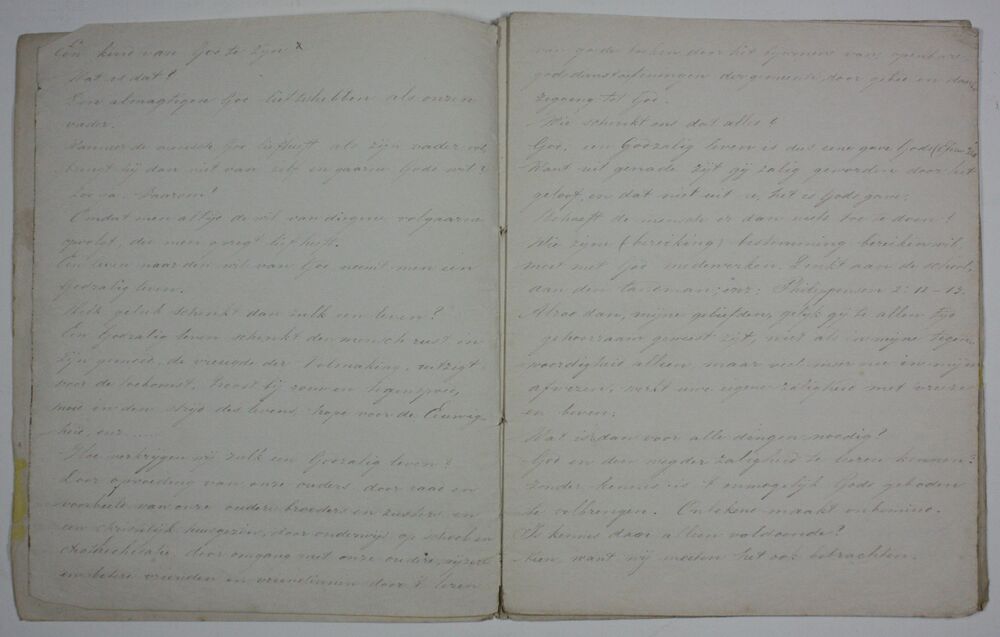 Een kind van God te zijn x
Wat is dat?
Den almagtigen God liefhebben als onzen
vader.
Wanneer de mensch God liefheeft als zijn vader vol
brengt hij dan niet van zelf en gaarne Gods wil?
Daarom!
Omdat men altijd de wil van diegene volgaarne
opvolgt, die men opregt liefheeft.
Een leven naar den wil van God noemt men een
Godzalig leven.
Welk geluk schenkt dan zulk een leven?
Een Godzalig leven schenkt den mensch rust in
zijn gemoed, de vreugde der volmaking, uitzigt
voor de toekomst, troost bij rouw en tegenspoed,
moed in den strijd des levens, hope voor de Eeuwig-
heid, enz.....
Hoe verkrijgen wij zulk een Godzalig leven?
Door opvoeding van onze ouders, door raad en
voorbeeld van onze oudere broeders en zusters en
een christelijk huisgezin, door onderwijs op school en
Cathechisatie door omgang met onze oudere, wijzere
en betere vrienden en vriendinnen door 't lezen
van goede boeken door het bijwonen van openbare
godsdienstoefeningen der gemeente, door gebed en dank
zegging tot God.
Wie schenkt ons dat alles?
God, een Godzalig leven is dus eene gave Gods (Efeze 2:8
Want uit genade zijt gij zalig geworden door het
geloof, en dat niet uit u, het is Gods gave;
Behoeft de mensch er dan niets toe te doen?
Wie zijne (bereiking) bestemming bereiken wil,
moet met God medewerken. Denkt aan de school,
aan den landman; enz: Philippensen 2: 12-13.
Alzoo dan, mijne geliefden, gelijk gij te allen tijd
gehoorzaam geweest zijt, niet als in mijne tegen
woordigheid alleen, maar veel meer nu in mijn
afwezen, werkt uwe eigene zaligheid met vreeze
en beven;
Wat is dan voor alle dingen noodig?
God en den weg der zaligheid te leeren kennen?
Zonder kennis is 't onmogelijk Gods geboden
te volbrengen. Onbekend maakt onbemind.
Is kennis daar alleen voldoende?
Neen want wij moeten het ook betrachten.